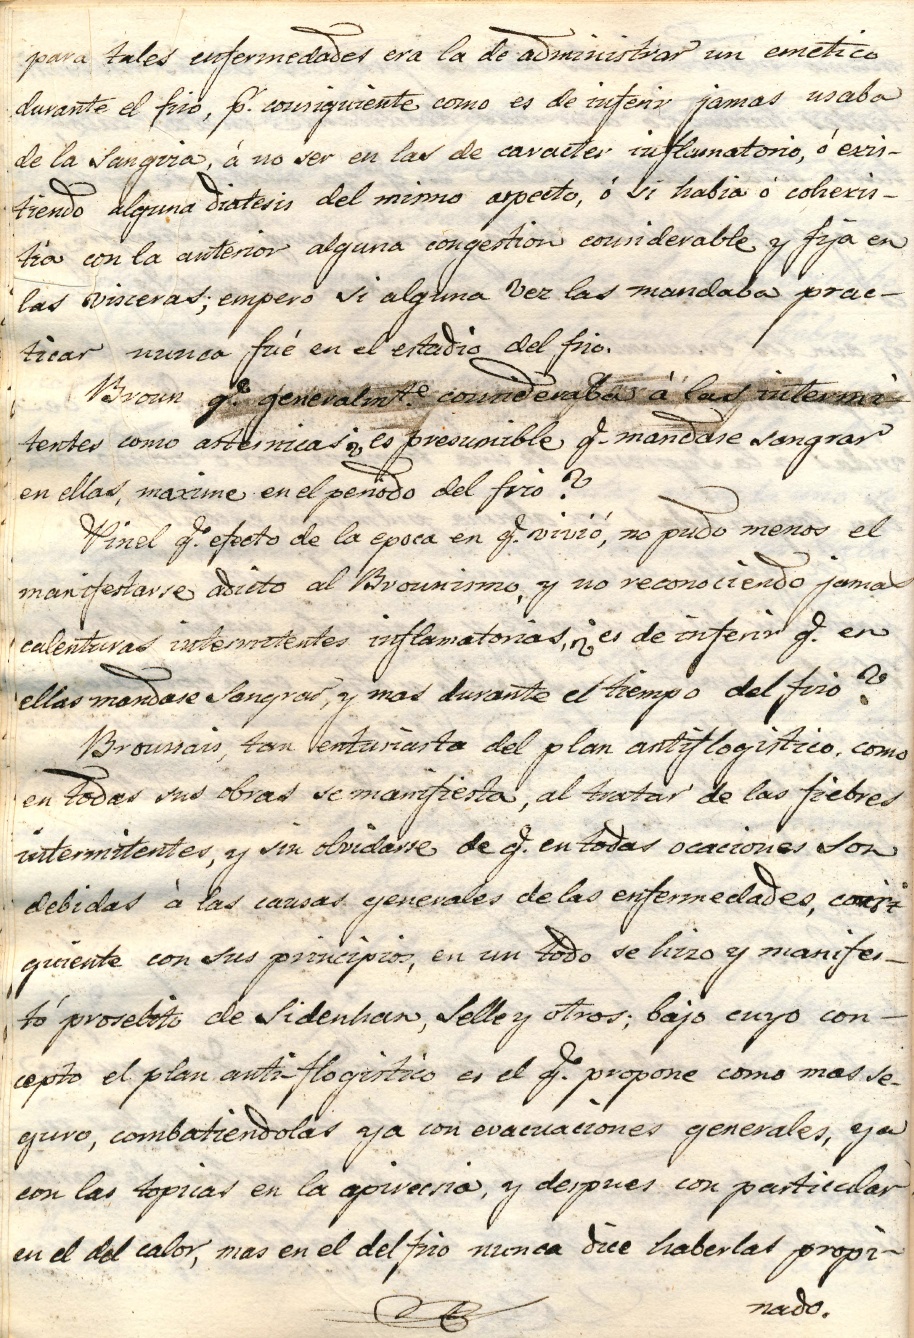 para tales enfermedades era la de administrar un emetico
durante el frio, pr. consiguiente como es de inferir jamas usaba
de la Sangria, á no ser en las de caracter inflamatorio, ó exis-
tiendo alguna diatesis del mismo aspecto, ó si habia ó cohexis-
tia con la anterior alguna congestion considerable y fija en
las visceras; empero si alguna vez las mandaba prac-
ticar nunca fué en el estadio del frio.
Broun qe. generalmte. consideraba á las intermi-
tentes como astenicas ¿es presumible q. mandase sangrar
en ellas, maxime en el periodo del frio?
Pinel qe. efecto de la epoca en q. vivió, no pudo menos el
manifestarse adicto al Brounismo, y no reconociendo jamas
calenturas intermitentes inflamatorias, ¿es de inferir q. en
ellas mandase Sangrar, y mas durante el tiempo del frio?
Broussais, tan enturiasta del plan antiflogistico, como
en todas sus obras se manifiesta, al tratar de las fiebres
intermitentes, y sin olvidarse de q. en todas ocaciones son
debidas à las causas generales de las enfermedades, consi-
guiente con sus principios, en un todo se hizo y manifes-
tó proselito de Sidenhan, Selle y otros; bajo cuyo con-
cepto el plan anti-flogistico es el qe. propone como mas se-
guro, combatiendolas ya con evacuaciones generales, ya
con las topicas en la apirecsia, y despues con particular
en el del calor, mas en el del frio nunca dice haberlas propi-
nado.